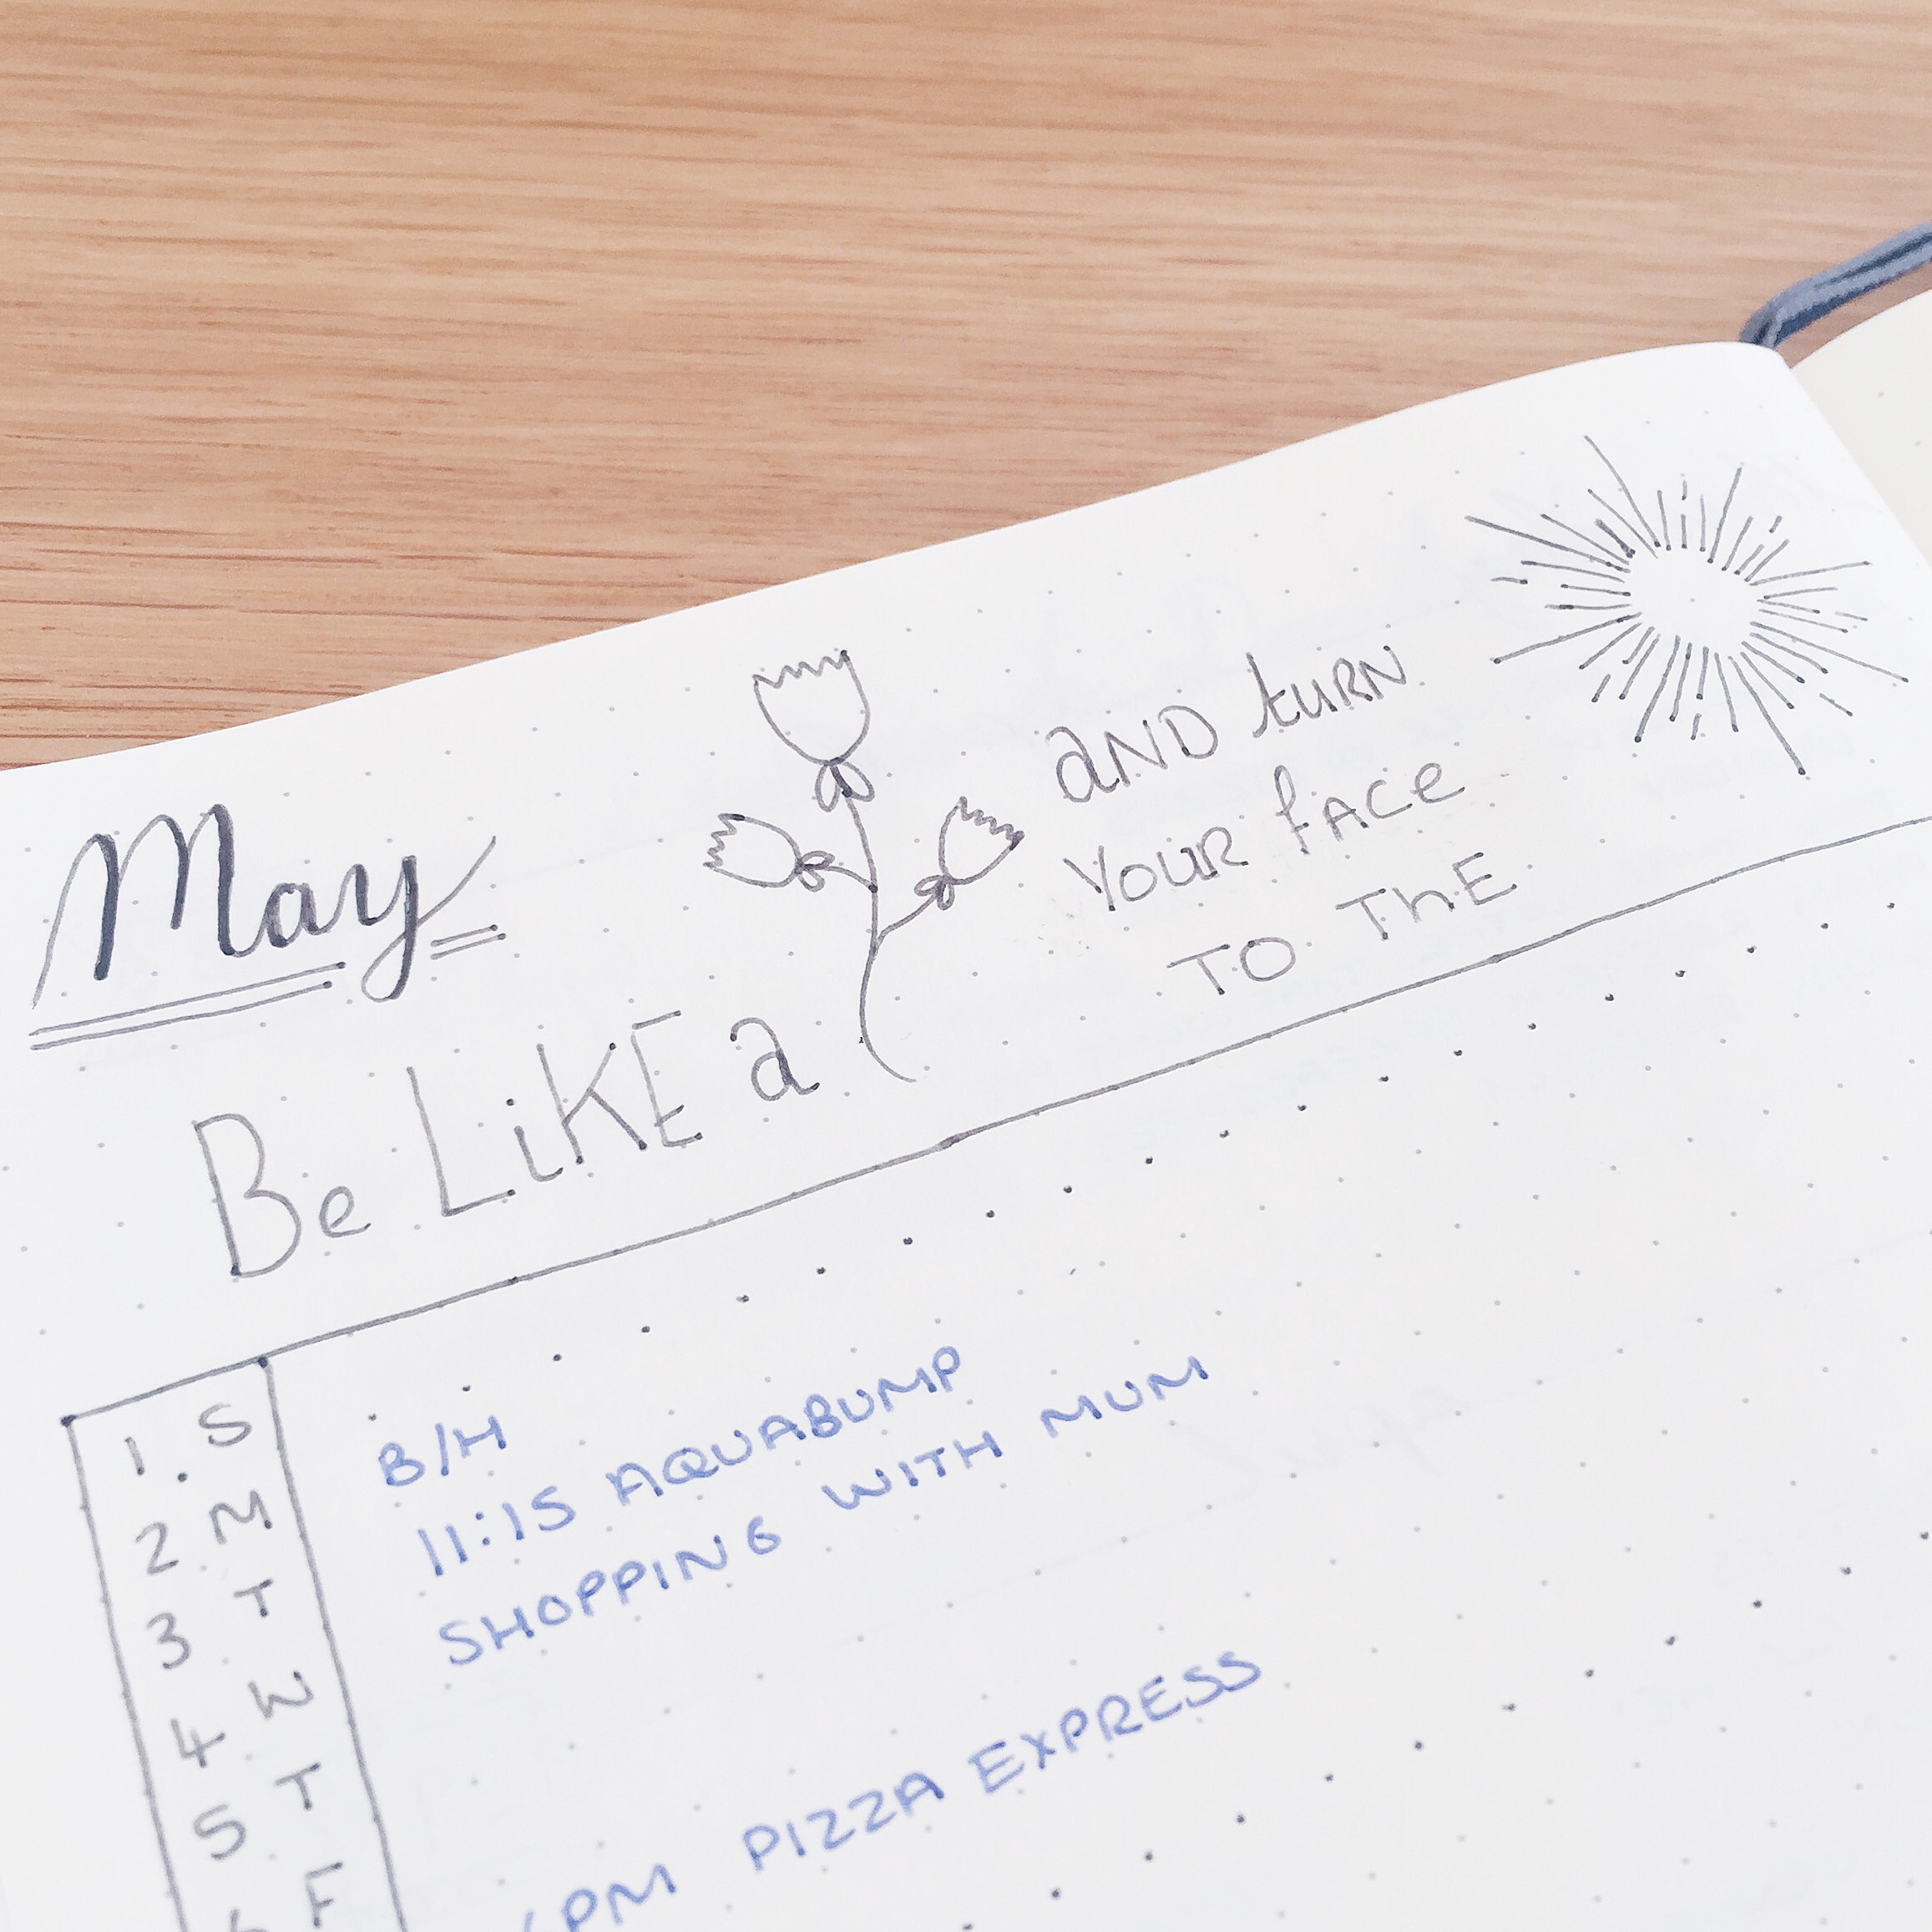 May
Be LiKE a
aND turn
YOUR fACe
TO ThE
1 S
2 M
3 T
4 W
5 T
F
B/H
11:15 AQUABUMP
SHOPPING WITH MUM
PM PIZZA EXPRESS